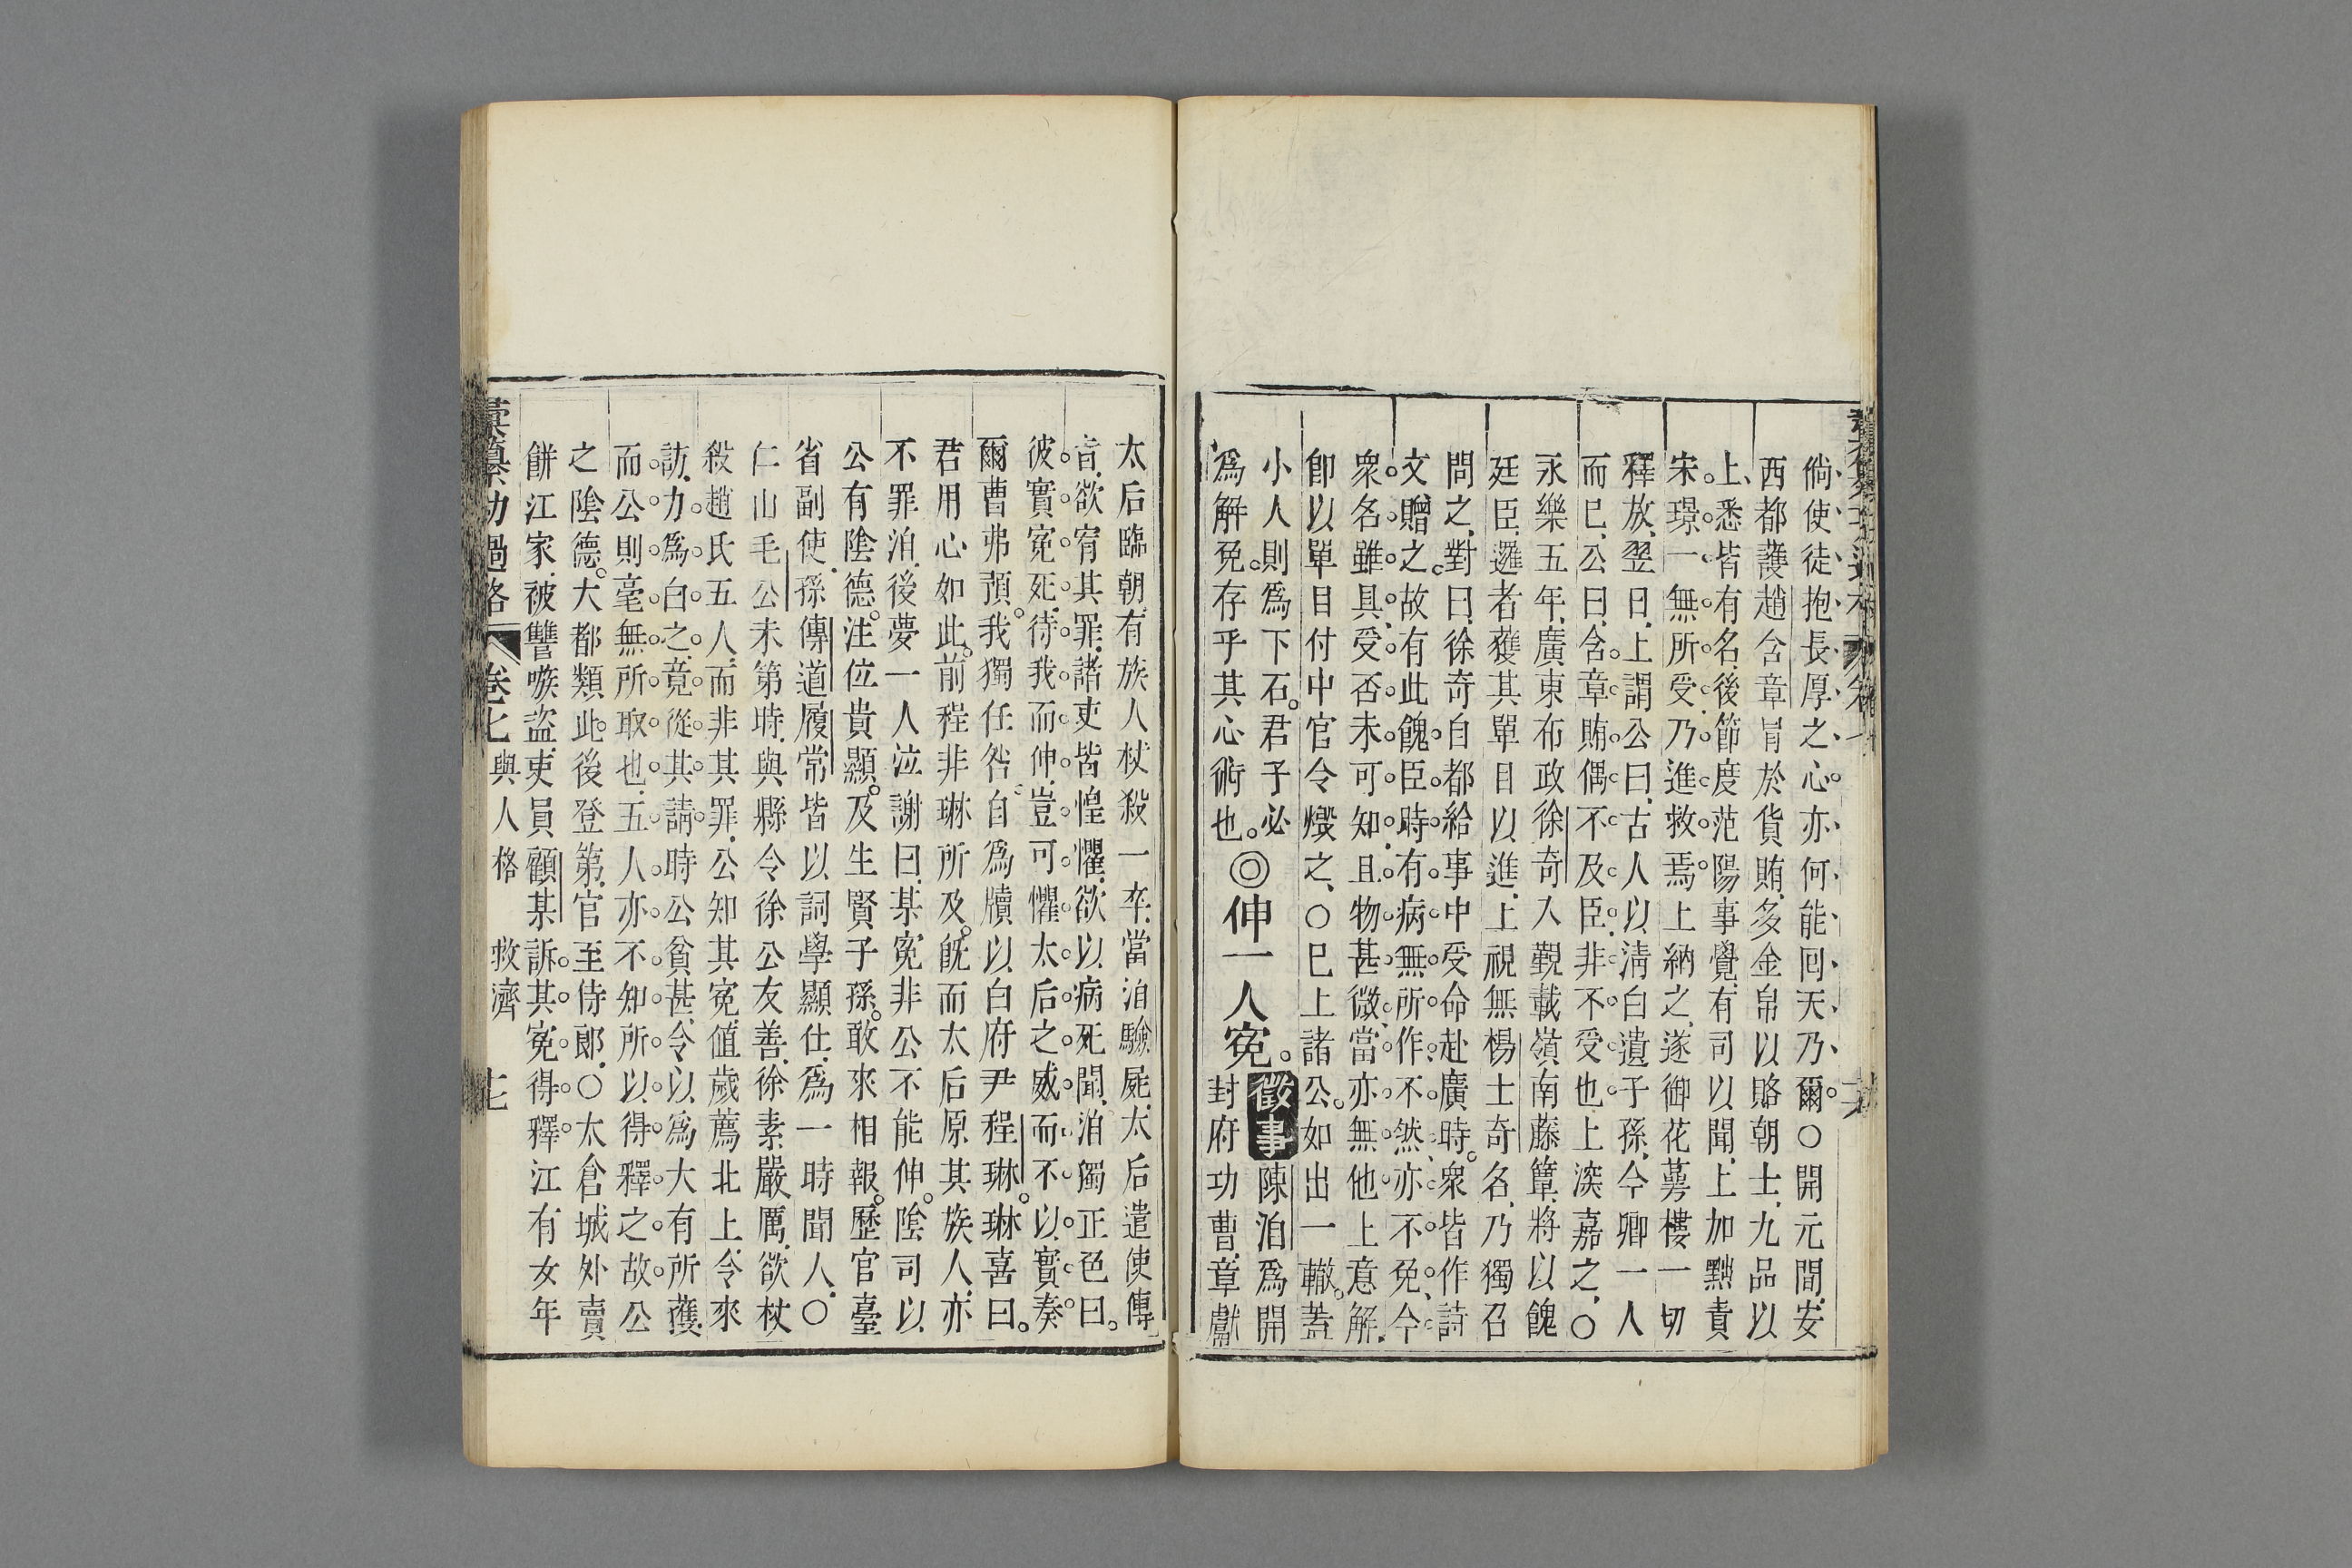 倘使徒抱長厚之心。亦何能回天乃爾。○開元間。安
西都護趙含章冐於貨賄。多金帛以賂朝士。九品以
上、悉皆有名。後節度范陽事覺。有司以聞。上加黜責
宋璟一無所受。乃進救焉。上納之。遂御花萼樓一切
釋放。翌日。上謂公曰。古人以淸白遺子孫。今卿一人
而已。公曰。含章賄偶不及臣。非不受也。上深嘉之。○
永樂五年。廣東布政徐奇入覲載嶺南藤簟。將以餽
廷臣。邏者獲其單目以進。上視無楊士奇名。乃獨召
問之。對曰。徐奇自都給事中受命赴廣時。衆皆作詩
文贈之。故有此餽。臣時有病無所作。不然亦不免。今
衆名雖具。受否未可知。且物甚微。當亦無他。上意解。
卽以單目付中官令燬之。○巳上諸公。如出一轍。蓋
小人則爲下石。君子必
爲解免。存乎其心術也。◎伸一人寃。徵事陳洎爲開
封府功曹。章獻
太后臨朝。有族人杖殺一卒。當洎驗屍。太后遣使傳
旨。欲宥其罪。諸吏皆惶懼。欲以病死聞。洎獨正色曰。
彼實寃死。待我而伸。豈可懼太后之威而不以實奏
爾曹弗預。我獨任咎。自爲牘以白府尹程琳。琳喜曰。
君用心如此。前程非琳所及。旣而太后原其族人。亦
不罪洎。後夢一人泣謝曰。某寃非公不能伸。陰司以
公有陰德。注位貴顯。及生賢子孫。敢來相報。歷官臺
省副使。孫傳道履常皆以詞學顯仕。爲一時聞人。○
仁山毛公未第時。與縣令徐公友善。徐素嚴厲。欲杖
殺趙氏五人。而非其罪。公知其寃。値歲薦北上。令來
訪。力爲白之。竟從其請。時公貧甚。令以爲大有所獲。
而公則毫無所取也。五人亦不知所以得釋之故。公
之陰德。大都類此。後登第。官至侍郎。○太倉城外賣
餅江家。被讐嗾盜。吏員顧某訴其寃。得釋。江有女年
彙纂功過格 卷七 與人格 救濟 七